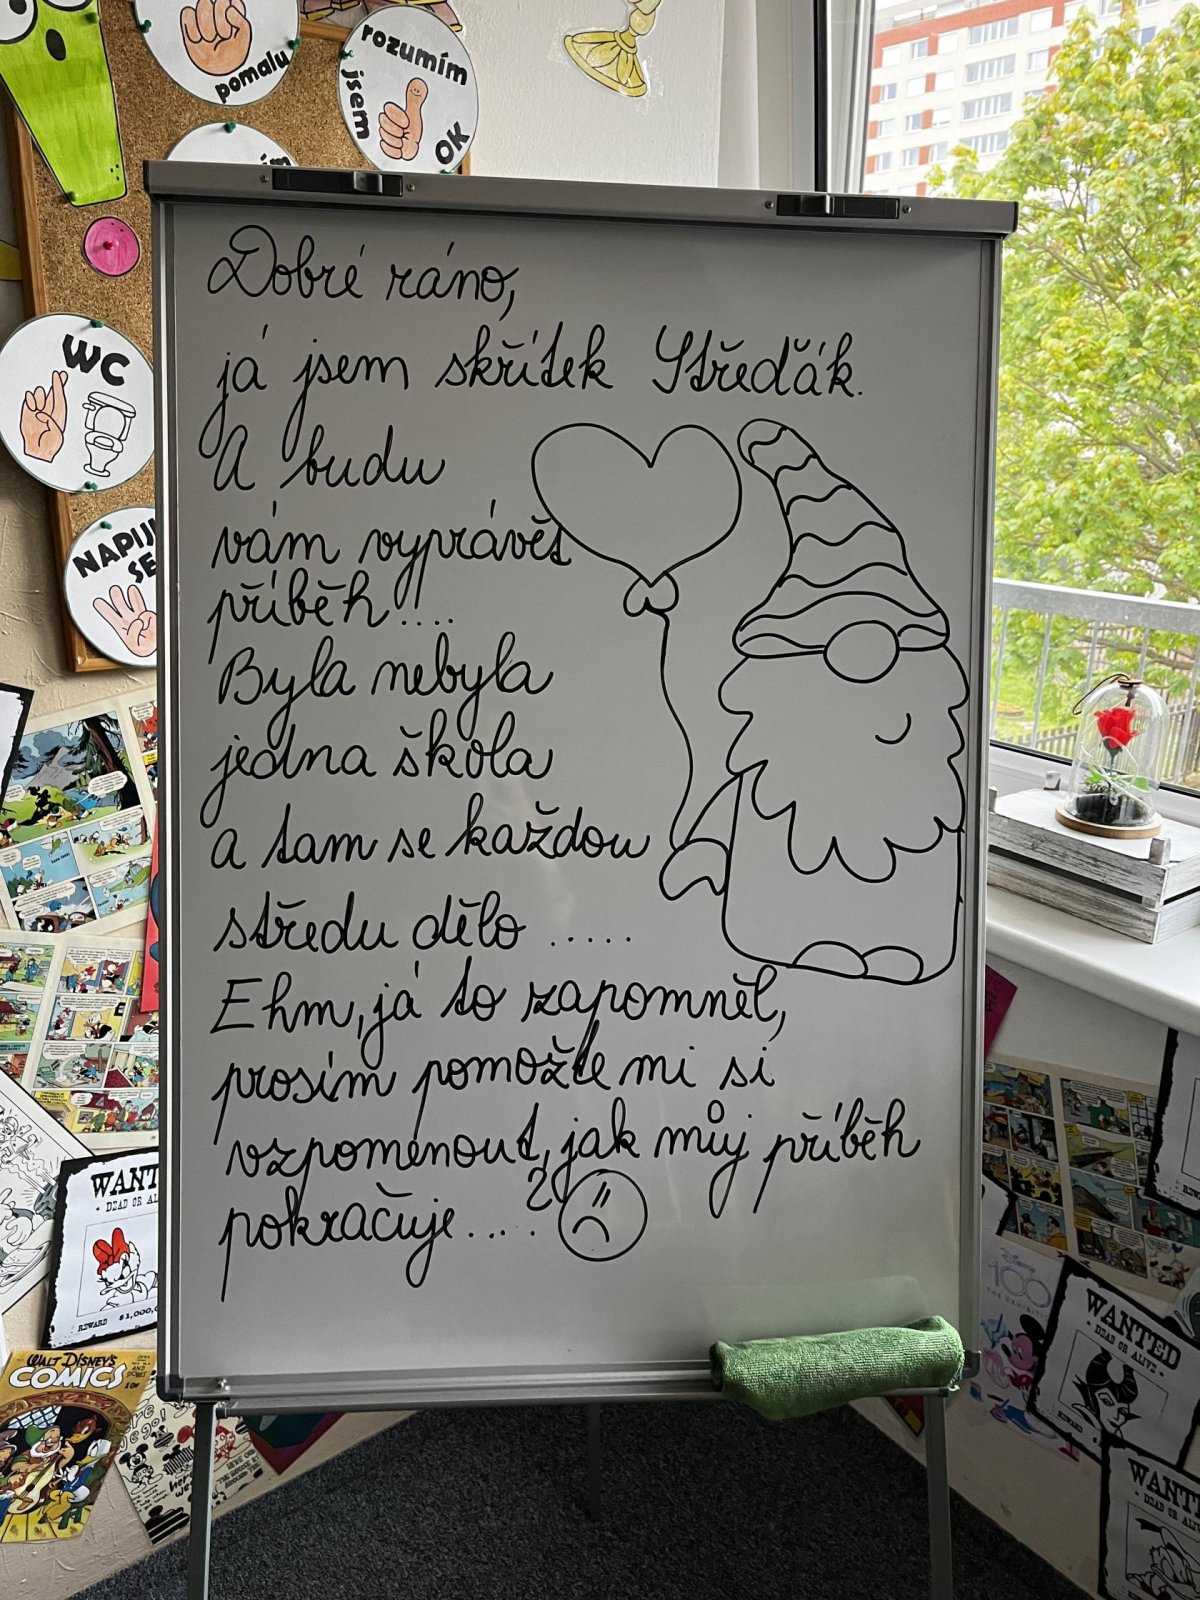 pomalu
rozumím
jsem
OK
WC
NAPIJ
SE
Dobré ráno,
já jsem skřítek Středák.
A budu
vám vyprávět
příběh....
Byla nebyla
jedna škola
a tam se každou
středu dělo .....
Ehm, já to zapomněl,
prosím pomožte mi si
vzpomenout, jak můj příběh
pokračuje....?
WANT
DEAD OR AL
REWARD $1,000,
WALT DISNEY'S
COMICS
AND
10¢
Disney
100
THE EXHIBIT
WANTED
DEAD OR ALIVE
REWARD
WANTED
DEAD OR ALIVE